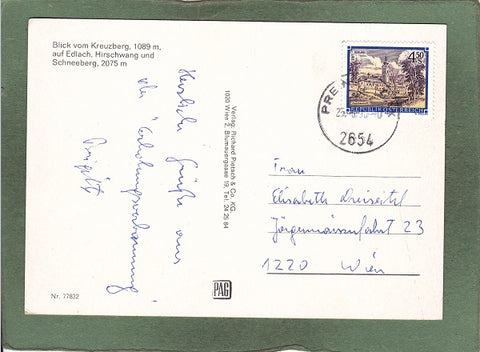 Blick vom Kreuzberg, 1089 m,
auf Edlach, Hirschwang und
Schneeberg, 2075 m
Herzliche Grüße aus
der "Erholungsverbannung"
Brigitte
Nr. 77832
Verlag: Richard Pietsch & Co. KG.
1020 Wien 2, Blumauergasse 19, Tel. 24 25 84
PAG
4.50
REPUBLIK ÖSTERREICH
2654
Frau
Elisabeth Dreiseitel
1220 Wien